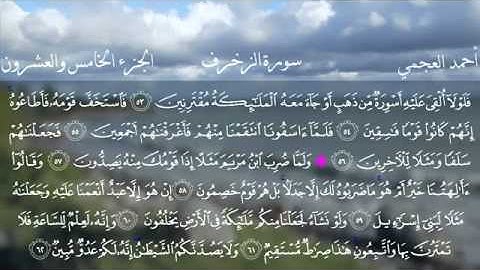 أحمد العجمي سورة الزخرف الجزء الخامس والعشرون
فَلَوْلَا أُلْقِىَ عَلَيْهِ أَسْوِرَةٌ مِّن ذَهَبٍ أَوْ جَآءَ مَعَهُ الْمَلَٰٓئِكَةُ مُقْتَرِنِينَ ٥٣ فَاسْتَخَفَّ قَوْمَهُۥ فَأَطَاعُوهُ
إِنَّهُمْ كَانُوا۟ قَوْمًا فَٰسِقِينَ ٥٤ فَلَمَّآ ءَاسَفُونَا انتَقَمْنَا مِنْهُمْ فَأَغْرَقْنَٰهُمْ أَجْمَعِينَ ٥٥ فَجَعَلْنَٰهُمْ
سَلَفًا وَمَثَلًا لِّلْءَاخِرِينَ ٥٦ وَلَمَّا ضُرِبَ ابْنُ مَرْيَمَ مَثَلًا إِذَا قَوْمُكَ مِنْهُ يَصِدُّونَ ٥٧ وَقَالُوٓا۟
ءَأَٰلِهَتُنَا خَيْرٌ أَمْ هُوَ مَا ضَرَبُوهُ لَكَ إِلَّا جَدَلًۢا بَلْ هُمْ قَوْمٌ خَصِمُونَ ٥٨ إِنْ هُوَ إِلَّا عَبْدٌ أَنْعَمْنَا عَلَيْهِ وَجَعَلْنَٰهُ
مَثَلًا لِّبَنِىٓ إِسْرَٰٓءِيلَ ٥٩ وَلَوْ نَشَآءُ لَجَعَلْنَا مِنكُم مَّلَٰٓئِكَةً فِى الْأَرْضِ يَخْلُفُونَ ٦٠ وَإِنَّهُۥ لَعِلْمٌ لِّلسَّاعَةِ فَلَا
تَمْتَرُنَّ بِهَا وَاتَّبِعُونِ هَٰذَا صِرَٰطٌ مُّسْتَقِيمٌ ٦١ وَلَا يَصُدَّنَّكُمُ الشَّيْطَٰنُ إِنَّهُۥ لَكُمْ عَدُوٌّ مُّبِينٌ ٦٢